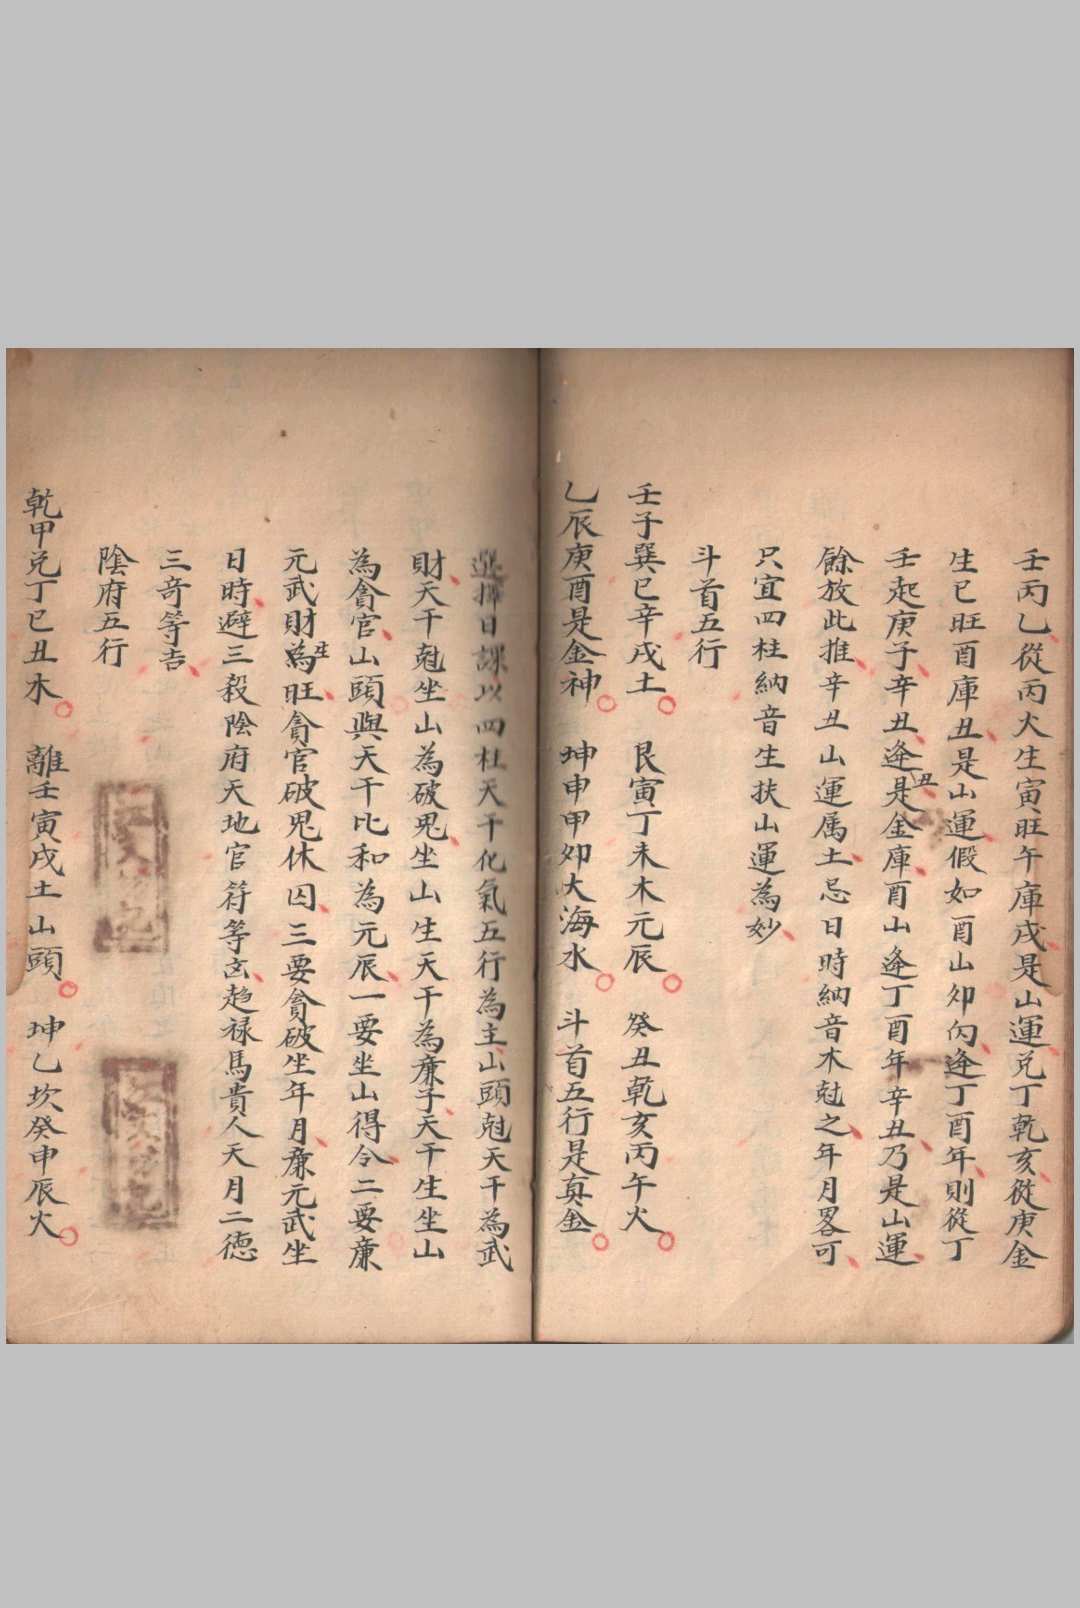 壬丙乙從丙火生寅旺午庫戌是山運兑丁乾亥從庚金
生巳旺酉庫丑是山運假如酉山夘向逄丁酉年則從丁
壬起庚子辛丑逄丑是金庫酉山逄丁酉年辛丑乃是山運
餘放此推辛丑山運属土忌日時納音木尅之年月畧可
只宜四柱納音生扶山運為妙
斗首五行
壬子巽巳辛戌土　艮寅丁未木元辰　癸丑乾亥丙午火
乙辰庚酉是金神　坤申甲夘大海水　斗首五行是真金
選擇日課以四柱天干化氣五行為主山頭尅天干為武
財天干尅坐山為破鬼坐山生天干為廉子天干生坐山
為貪官山頭與天干比和為元辰一要坐山得令二要廉
元武財為生旺貪官破鬼休囚三要貪破坐年月廉元武坐
日時避三殺隂府天地官符等㐫趋禄馬貴人天月二德
三竒等吉
隂府五行
乾甲兑丁巳丑木　離壬寅戌土山頭　坤乙坎癸申辰火